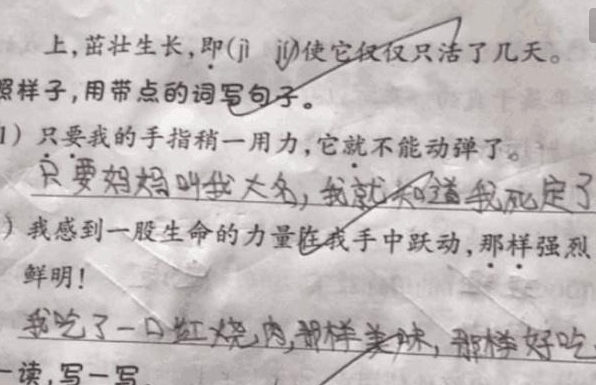 上,茁壮生长,即(jì jí)使它仅仅只活了几天。
照样子,用带点的词写句子。
1)只要我的手指稍一用力,它就不能动弹了。
只要妈妈叫我大名,我就知道我死定了
)我感到一股生命的力量在我手中跃动,那样强烈
鲜明!
我吃了一口红烧肉,那样美味,那样好吃
一读,写一写。